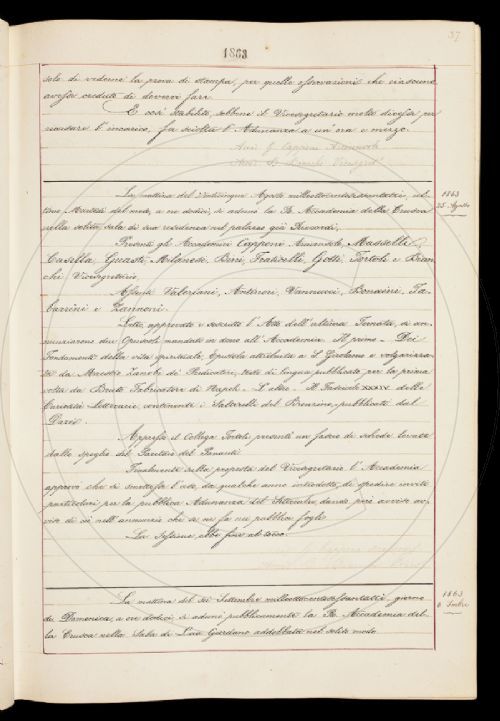 37
1863
solo di vederne la prova di stampa, per quelle osservazioni che ciascuno
avesse creduto di doversi fare.
E così stabilito, sebbene il Vicesegretario molto dicesse per
ricusare l'incarico, fu sciolta l'Adunanza a un'ora e mezzo.
G. Capponi
1863
25 Agosto
La mattina del venticinque Agosto milleottocentosessantatrè, ul-
timo Martedì del mese, a ore dodici, si adunò la R. Accademia della Crusca
nella solita sala di sua residenza nel palazzo già Riccardi,
Presenti gli Accademici Capponi Arciconsolo, Masselli
Casella, Guasti, Milanesi, Bini, Fraticelli, Gotti, Tortoli e Bian-
chi Vicesegretario.
Assenti Valeriani, Arcangeli, Vannucci, Bonaini, Ta-
barrini e Zannoni.
Letto, approvato e soscritto l'Atto dell'ultima Tornata, si an-
nunziarono due Opuscoli mandati in dono all'Accademia. Il primo - Dei
Fondamenti della vita spirituale, Epistola attribuita a S. Girolamo e volgarizza-
ta da Maestro Zanobi dei Predicatori, testo di lingua pubblicato per la prima
volta da Bruto Fabricatore di Napoli - L'altro - Il Fascicolo XXXIV delle
Curiosità Letterarie contenenti i Salterelli del Bronzino, pubblicate dal
Dario.
Appresso il Collega Tortoli presentò un fascio di schede levate
dallo spoglio del Paretaio del Pananti.
Finalmente sulla proposta del Vicesegretario l'Accademia
approvò che si smettesse l'uso, da qualche anno introdotto, di spedire inviti
particolari per la pubblica Adunanza del Settembre, dando però avviso av-
viso di ciò nell'annunzio che se ne fa ne' pubblici fogli.
La Sessione ebbe fine al tocco.
1863
6 Settbre
La mattina del sei Settembre milleottocentosessantatrè, giorno
di Domenica, a ore dodici si adunò pubblicamente la R. Accademia del-
la Crusca nella Sala di Luca Giordano addobbata nel solito modo.